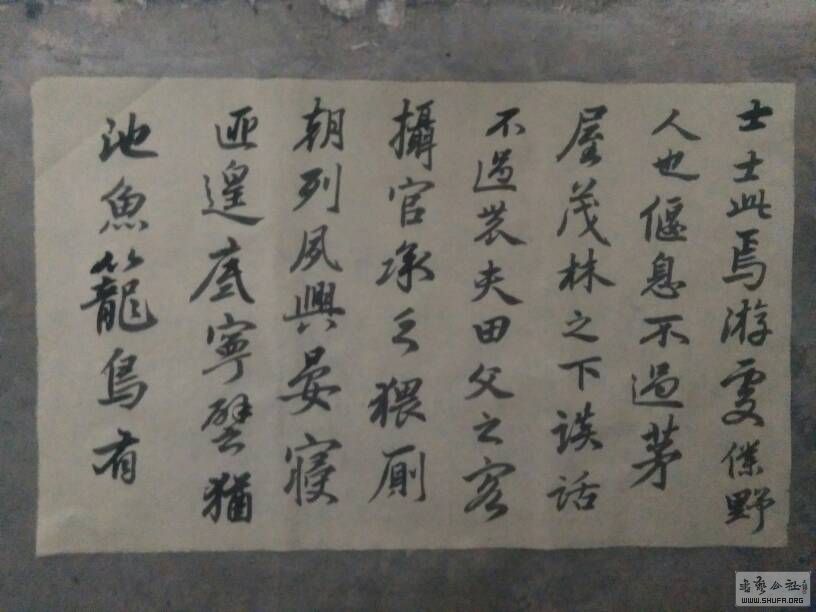 士士此焉游處僕野
人也偃息不過茅
屋茂林之下談話
不過農夫田父之客
攝官承乏猥厠
朝列夙興晏寢
匪遑底寧譬猶
池魚籠鳥有
書藝公社
WWW.SHUFA.ORG